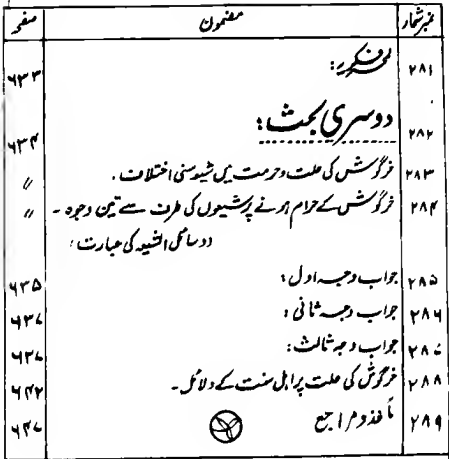 نمبر شمار مضمون صفحہ
۲۸۱ لمحہ فکریہ: ۶۳۳
۲۸۲ دوسری بحث: ۶۳۴
۲۸۳ خرگوش کی حلت وحرمت میں شیعہ سنی اختلاف. //
۲۸۴ خرگوش کے حرام ہونے پر شیعوں کی طرف سے تین وجوہ - //
وسائل الشیعہ کی عبارت:
۲۸۵ جواب وجہ اول: ۶۳۵
۲۸۶ جواب وجہ ثانی: ۶۳۷
۲۸۷ جواب وجہ ثالث: ۶۳۷
۲۸۸ خرگوش کی حلت پر اہل سنت کے دلائل - ۶۴۲
۲۸۹ مآخذ و مراجع ۶۴۷